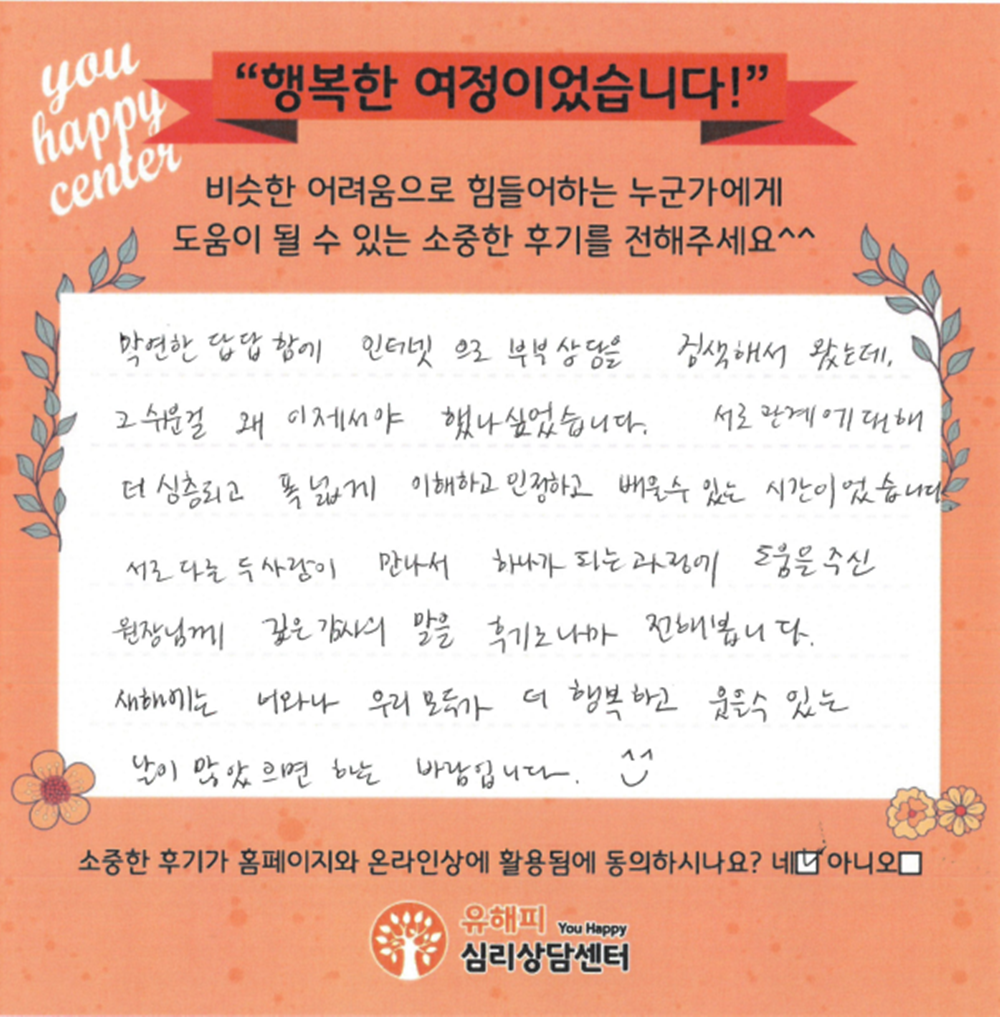 you
happy
center
“행복한 여정이었습니다!”
비슷한 어려움으로 힘들어하는 누군가에게
도움이 될 수 있는 소중한 후기를 전해주세요^^
막연한 답답함에 인터넷으로 부부상담을 검색해서 왔는데,
그 쉬운걸 왜 이제서야 했나싶었습니다. 서로 관계에 대해
더 심층되고 폭넓게 이해하고 인정하고 배울수 있는 시간이었습니다
서로 다른 두 사람이 만나서 하나가 되는 과정에 도움을 주신
원장님께 깊은 감사의 말을 후기로나마 전해봅니다.
새해에는 너와나 우리 모두가 더 행복하고 웃을수 있는
날이 많았으면 하는 바람입니다. ^^
소중한 후기가 홈페이지와 온라인상에 활용됨에 동의하시나요? 네☑ 아니오□
유해피 You Happy
심리상담센터